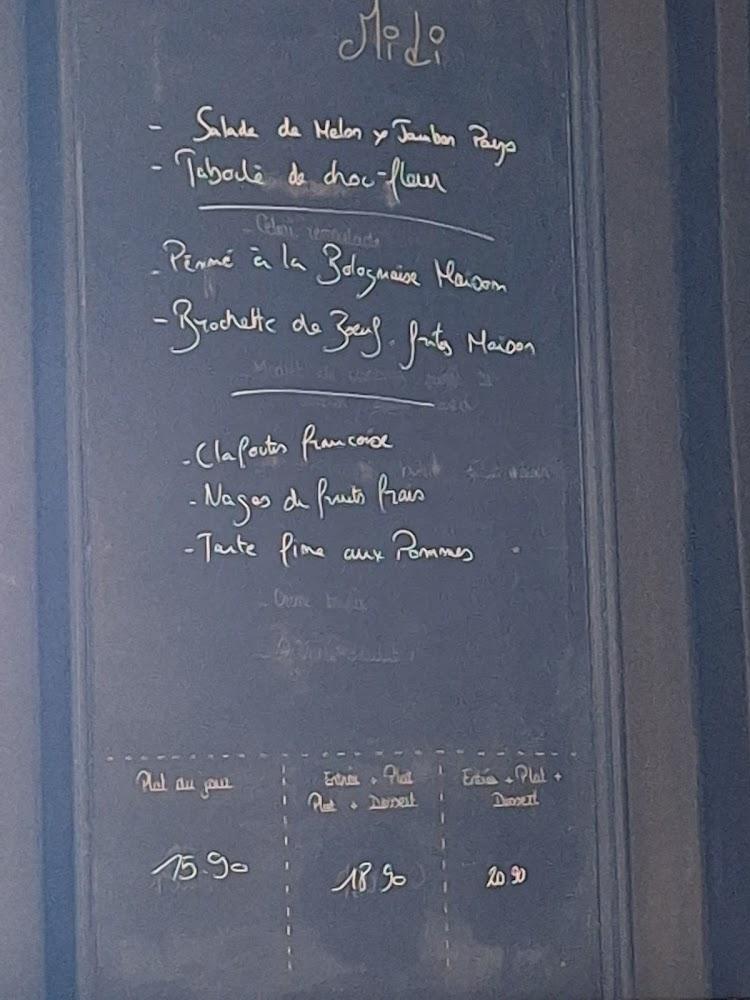 Midi
- Salade de Melon y Jambon Pays
- Taboulé de chou-fleur
- Céleri remoulade
- Penné à la Bolognaise Maison
- Brochette de Bœuf. frites Maison
- Clafoutis francaise
- Nages de fruits frais
- Tarte fine aux Pommes
Plat du jour
Entrée + Plat
Plat + Dessert
Entrée + Plat +
Dessert
15.90
18 90
20 90